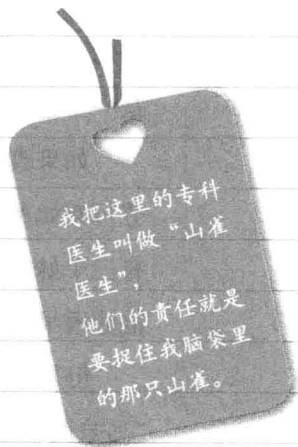 我把这里的专科
医生叫做“山雀
医生”，
他们的责任就是
要捉住我脑袋里
的那只山雀。